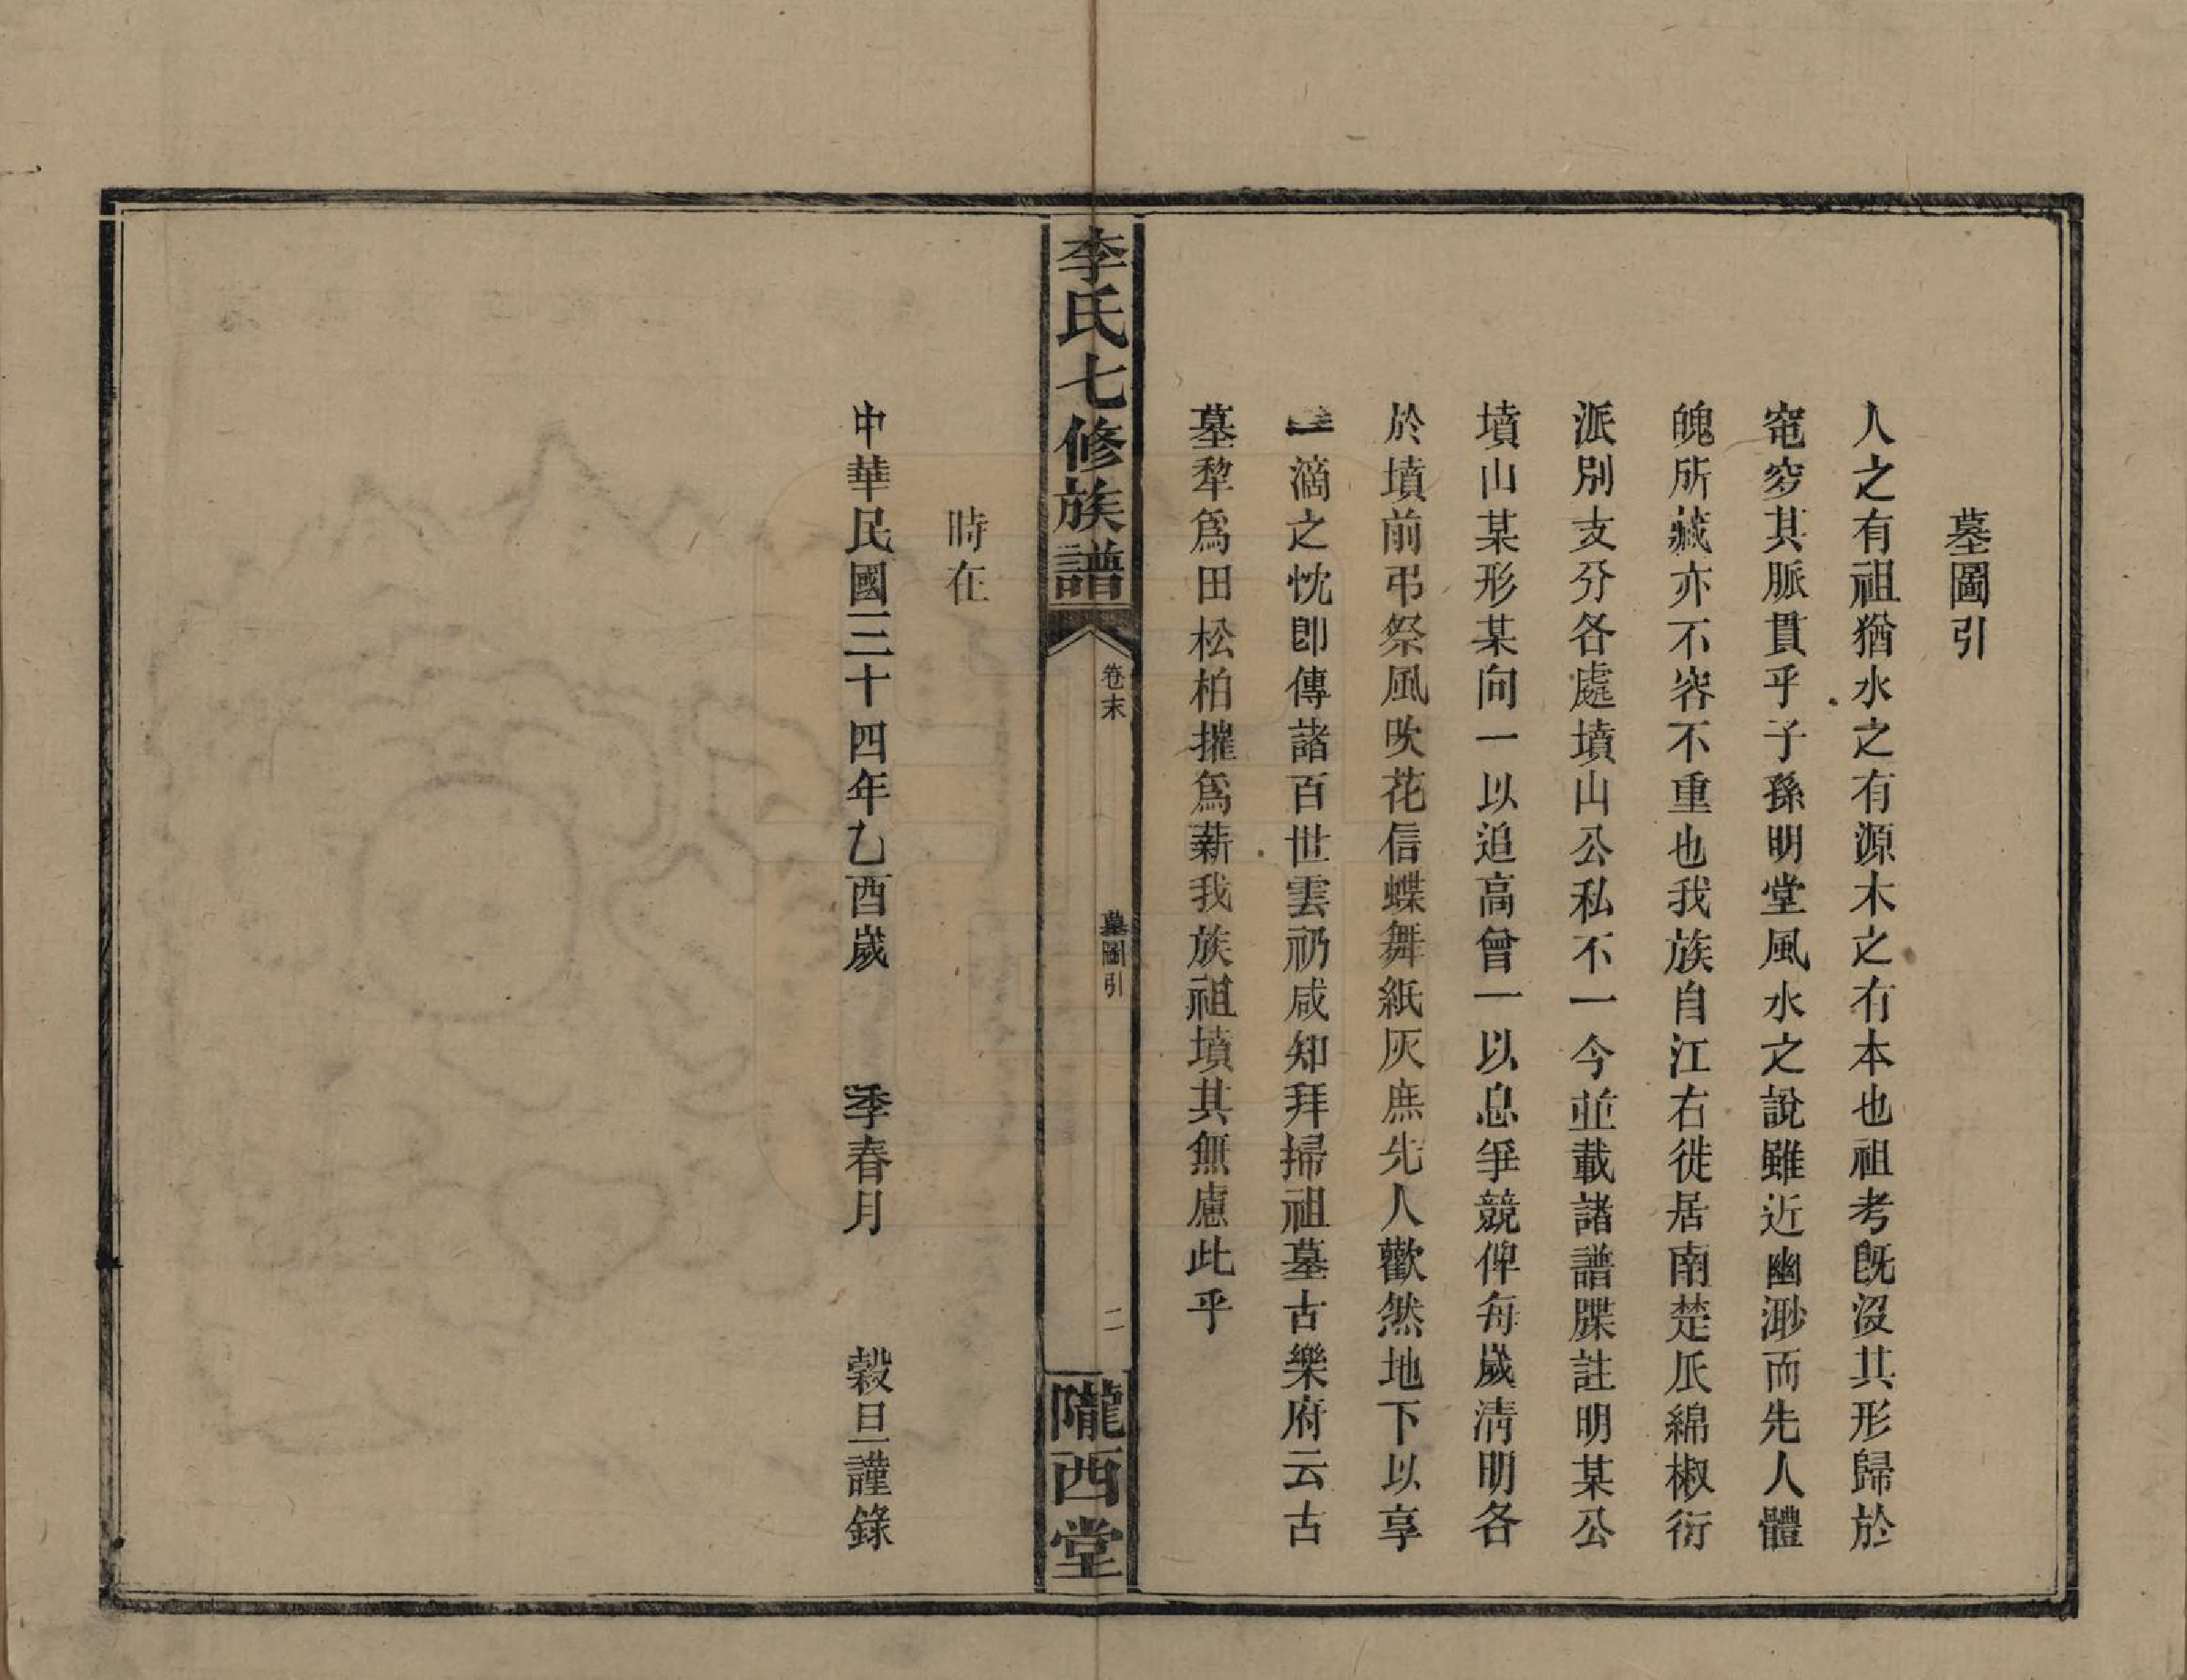 墓圖引
人之有祖猶水之有源木之有本也祖考旣沒其形歸於
窀穸其脈貫乎子孫明堂風水之說雖近幽渺而先人體
魄所藏亦不容不重也我族自江右徙居南楚瓜綿椒衍
派別支分各處墳山公私不一今並載諸譜牒註明某公
墳山某形某向一以追高曾一以息爭競俾每歲清明各
於墳前弔祭風吹花信蝶舞紙灰庶先人歡然地下以享
一滴之忱卽傳諸百世雲礽咸知拜掃祖墓古樂府云古
墓犂爲田松柏摧爲薪我族祖墳其無慮此乎
李氏七修族譜
卷末
墓圖引
二
隴西堂
時在
中華民國三十四年乙酉歲 季春月 穀旦謹錄